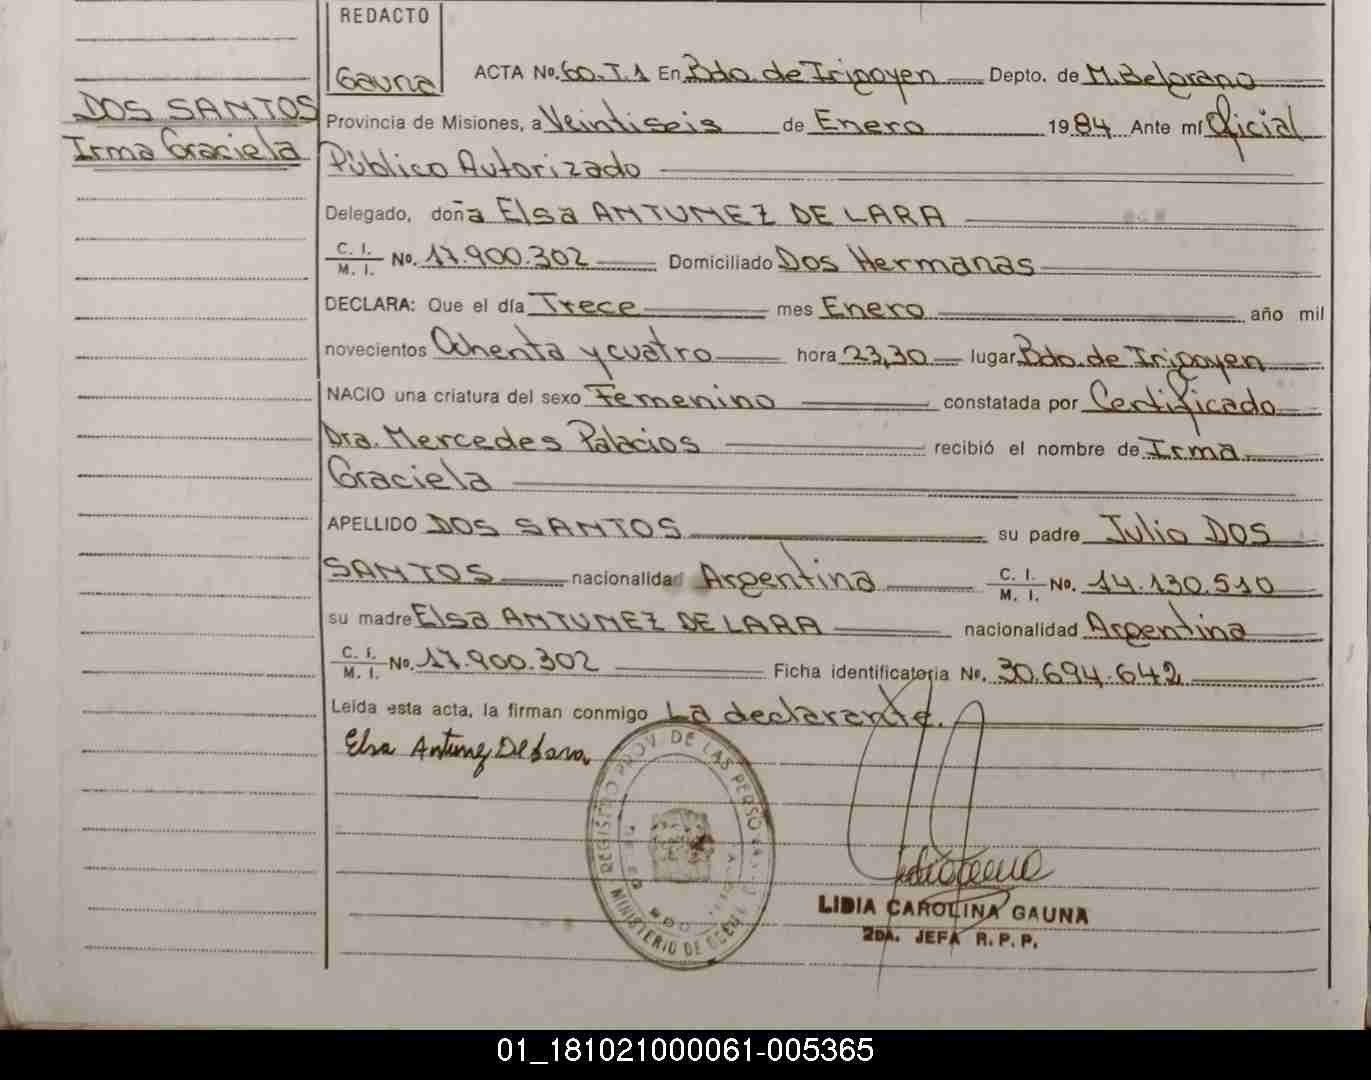 REDACTO
Gauna
DOS SANTOS
Irma Graciela
ACTA No. 60. T.1 En Bdo. de Irigoyen Depto. de M. Belgrano
Provincia de Misiones, a Veintiseis de Enero 1984 Ante mí Oficial
Público Autorizado
Delegado, doña Elsa ANTUNEZ DE LARA
C. I.
M. I. No. 17.900.302 Domiciliado Dos Hermanas
DECLARA: Que el día Trece mes Enero año mil
novecientos Ochenta y cuatro hora 23,30 lugar Bdo. de Irigoyen
NACIO una criatura del sexo Femenino constatada por Certificado
Dra. Mercedes Palacios recibió el nombre de Irma
Graciela
APELLIDO DOS SANTOS su padre Julio DOS
SANTOS nacionalidad Argentina C. I.
M. I. No. 14.130.510
su madre Elsa ANTUNEZ DE LARA nacionalidad Argentina
C. I.
M. I. No. 17.900.302 Ficha identificatoria No. 30.694.642
Leída esta acta, la firman conmigo La declarante.
Elsa Antunez De Lara
REGISTRO PROV. DE LAS PERSONAS
MINISTERIO DE GOB
LIDIA CAROLINA GAUNA
2DA. JEFA R. P. P.
01_181021000061-005365